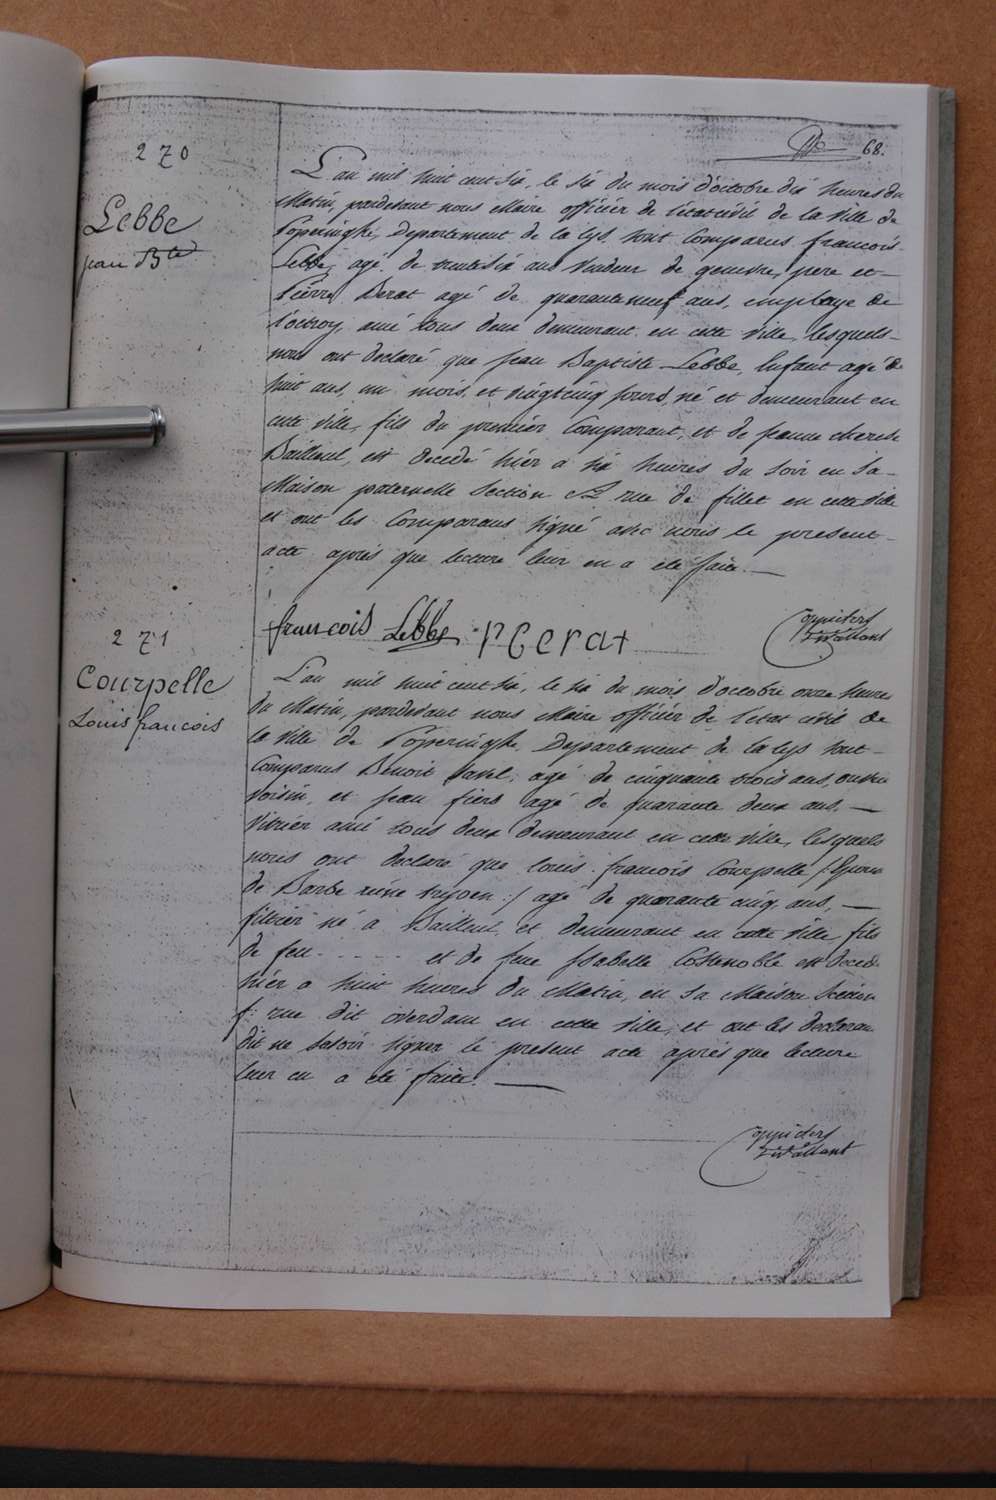 68.
270
Lebbe
jean Bte
L'an mil huit cent six, le six du mois d'octobre dix heures du
Matin, pardevant nous Maire officier de l'etat civil de la Ville de
Poperinghe, Departement de la Lys, sont Comparus francois
Lebbe, agé de trente six ans Vendeur de genievre, pere et
Pierre Derat agé de quarante neuf ans, employe de
l'octroy, amé tous deux demeurant en cette Ville, lesquels
nous ont declaré que Jean Baptiste Lebbe, Enfant agé de
huit ans, un mois, et vingt cinq jours, né et demeurant en
cette Ville, fils du premier Comparant, et de jeanne therese
Bailleul, est decedé hier a six heures du soir en sa
Maison paternelle Section A rue de fillet en cette Ville
et ont les Comparans signé avec nous le present
acte après que lecture leur en a été faite.
francois Lebbe PCerat
271
Courpelle
Louis francois
L'an mil huit cent six, le six du mois d'octobre onze heures
du Matin, pardevant nous Maire officier de l'etat civil de
la Ville de Poperinghe, Departement de la Lys sont
Comparus Benoit Pavel, agé de cinquante trois ans,
Voisin, et jean fiers agé de quarante deux ans,
Vitrier amé tous deux demeurant en cette Ville, lesquels
nous ont declaré que louis francois Courpelle /:Epoux
de Barbe reine :/ agé de quarante cinq ans,
filtier né a Bailleul et demeurant en cette Ville, fils
de feu ..... et de feue Isabelle Costenoble est decedé
hier a huit heures du Matin, en sa Maison Section
f: rue dit overdam en cette Ville, et ont les declarans
dit ne savoir signer le present acte après que lecture
leur en a été faite.